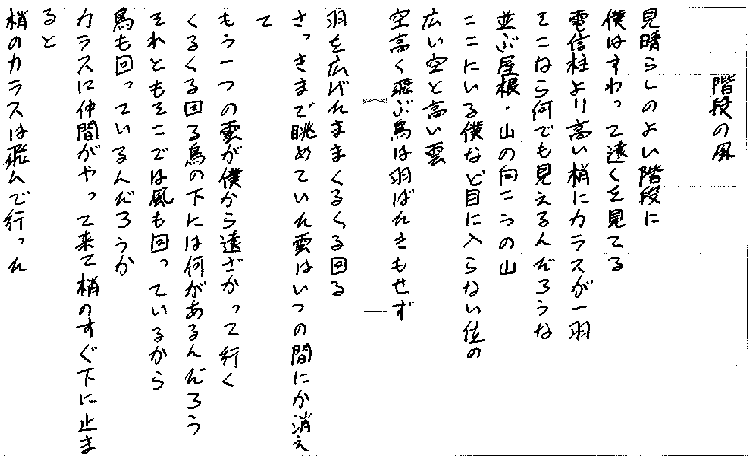 階段の風
見晴らしのよい階段に
僕はすわって遠くを見てる
電信柱より高い梢にカラスが一羽
そこから何でも見えるんだろうな
並ぶ屋根・山の向こうの山
ここにいる僕など目に入らない位の
広い空と高い雲
空高く飛ぶ鳥は羽ばたきもせず
羽を広げたままくるくる回る
さっきまで眺めていた雲はいつの間にか消え
て
もう一つの雲が僕から遠ざかって行く
くるくる回る鳥の下には何があるんだろう
それともそこでは風も回っているから
鳥も回っているんだろうか
カラスに仲間がやって来て梢のすぐ下に止ま
ると
梢のカラスは飛んで行った